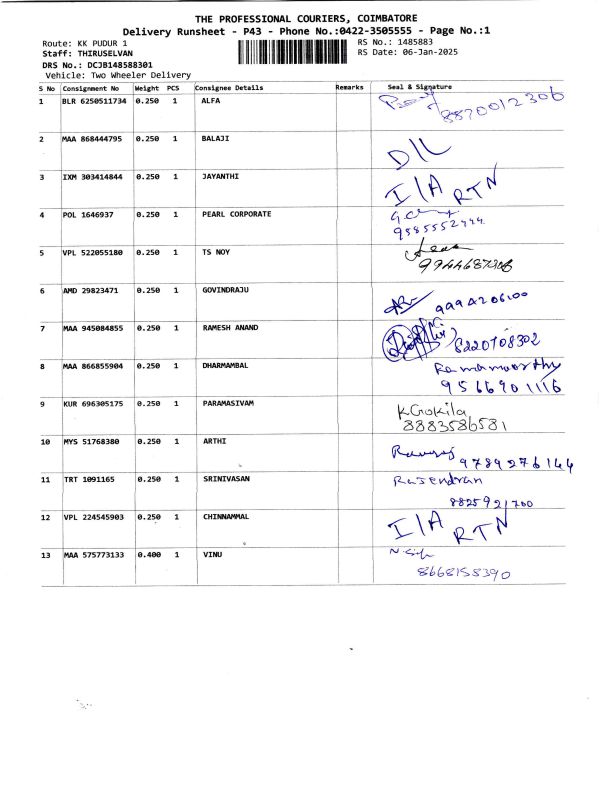 THE PROFESSIONAL COURIERS, COIMBATORE
Delivery Runsheet - P43 - Phone No.:0422-3505555 - Page No.:1
Route: KK PUDUR 1 RS No.: 1485883
Staff: THIRUSELVAN RS Date: 06-Jan-2025
DRS No.: DCJB148588301
Vehicle: Two Wheeler Delivery
S No Consignment No Weight PCS Consignee Details Remarks Seal & Signature
1 BLR 6250511734 0.250 1 ALFA 8870012306
2 MAA 868444795 0.250 1 BALAJI D/L
3 IXM 303414844 0.250 1 JAYANTHI I/A RTN
4 POL 1646937 0.250 1 PEARL CORPORATE
9585552444
5 VPL 522055180 0.250 1 TS NOY
6 AMD 29823471 0.250 1 GOVINDRAJU 9994206100
7 MAA 945084855 0.250 1 RAMESH ANAND 8220708302
8 MAA 866855904 0.250 1 DHARMAMBAL Ramamoorthy
9566901116
9 KUR 696305175 0.250 1 PARAMASIVAM K Gokila
8883586581
10 MYS 51768380 0.250 1 ARTHI
9789276144
11 TRT 1091165 0.250 1 SRINIVASAN Rajendran
8825921700
12 VPL 224545903 0.250 1 CHINNAMMAL I/A RTN
13 MAA 575773133 0.400 1 VINU
8668158390